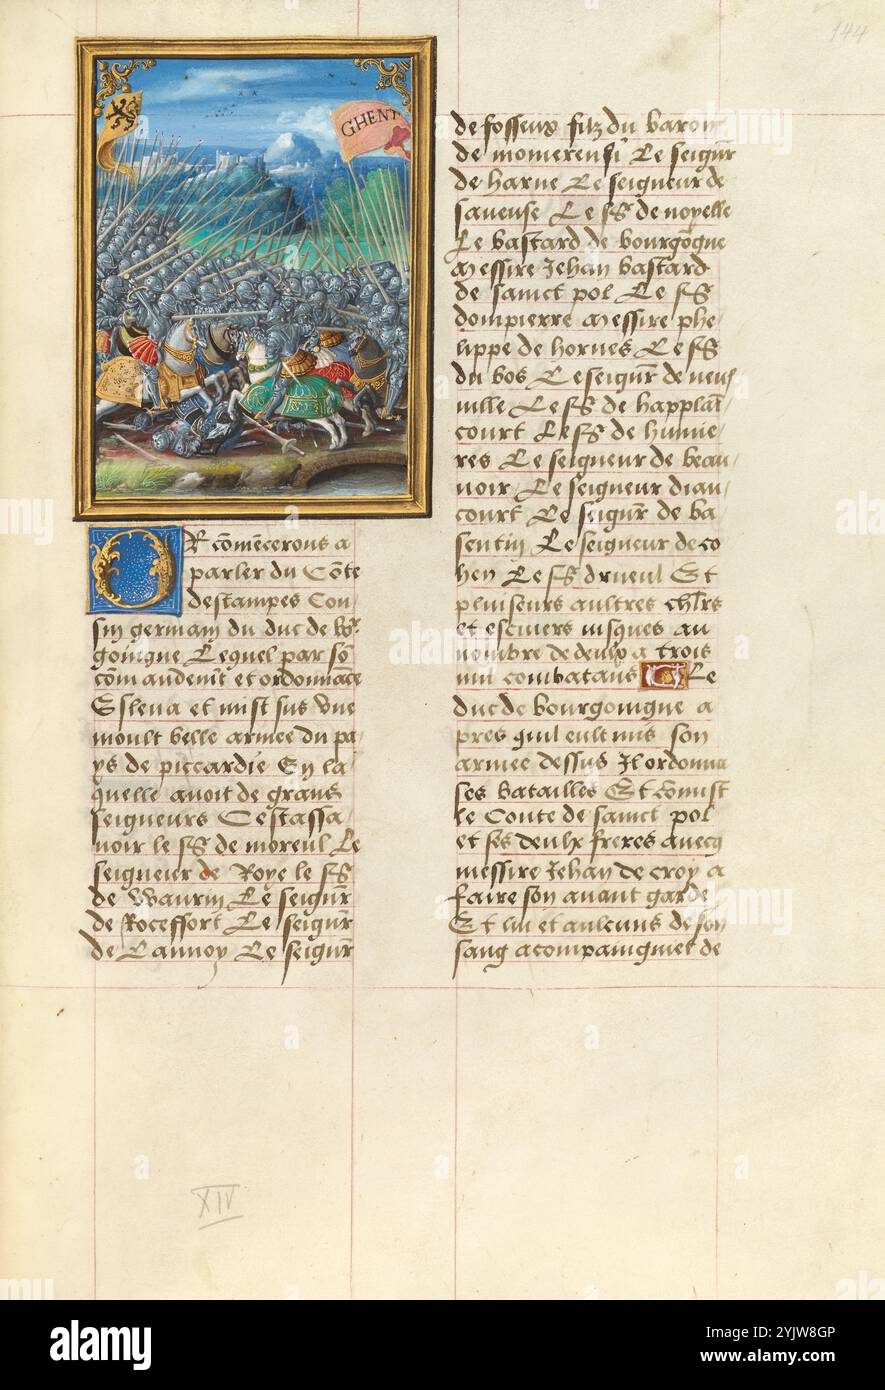 144
GHENT
OR com̄encerons a
parler du Cōte
destampes Cou-
sin germain du duc de b
goingne Lequel par sō
com̄andemēt et ordonnāce
Esleua et mist sus vne
moult belle armee du pa/
ys de piccardie En la
quelle auoit de grans
seigneurs Cestassa/
uoir le sr̄ de moreul Le
seigneur de Roye le sr̄
de Waurin Le seigūr
de Roceffort Le seigūr
de Lannoy Le seigūr
de fosseux filz du baron
de momerensi Le seigūr
de harne Le seigneur de
saueuse Le sr̄ de noyelle
Le bastard de bourgōgne
Messire Jehan bastard
de sainct pol Le sr̄
dompierre Messire phe
lippe de hornes Le sr̄
du bos Le seigūr de neuf
uille Le sr̄ de happlai
court Le sr̄ de humie
res Le seigneur de beau/
uoir Le seigneur diau/
court Le seigūr de ba
sentin Le seigneur de co
hen Le sr̄ drueul Et
pluiseurs aultres chl̄rs
et escuiers iusques au
nombre de deux a trois
mil combatans Le
duc de bourgoingne a
pres quil eult mis son
armee dessus Il ordonna
ses batailles Et cōmist
le Conte de sainct pol
et ses deulx freres auecq
messire Jehan de croy a
faire son auant garde
Et lui et aulcuns de son
sang acompaingniet de
XIV
alamy
alamy
Image ID: 2YJW8GP
www.alamy.com